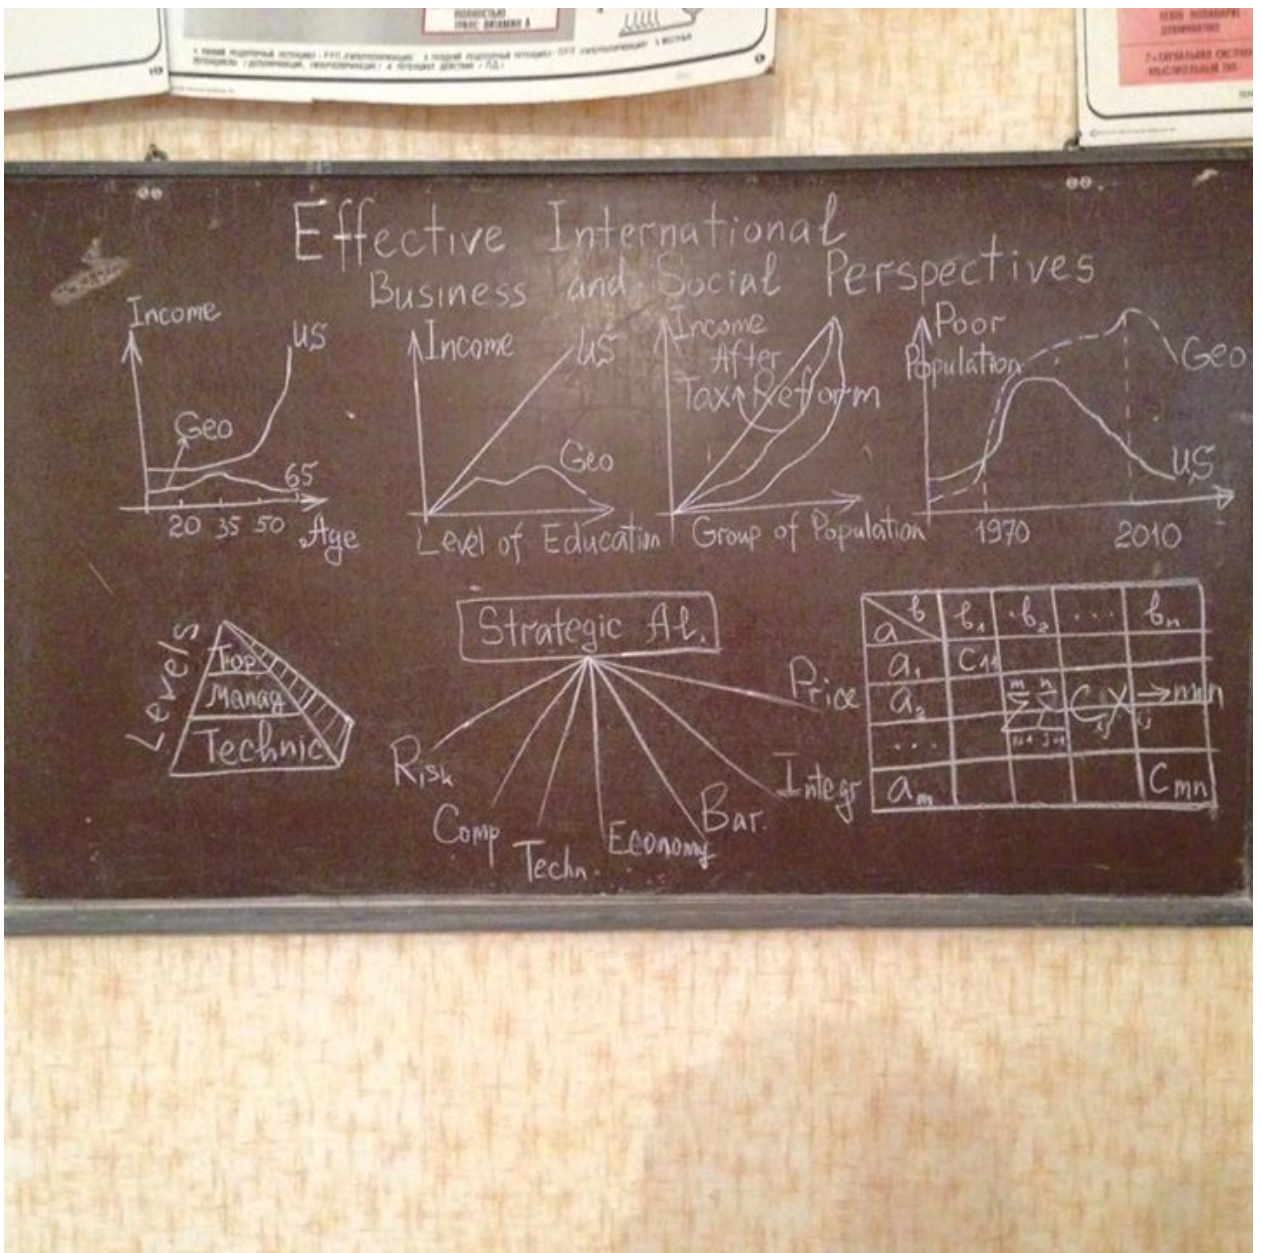 ПОЛНОСТЬЮ
ТРАНС-ВИТАМИН А
Effective International
Business and Social Perspectives
Income
US
Geo
65
20 35 50 Age
Income
US
Geo
Level of Education
Income
After
Tax Reform
Group of Population
Poor
Population
Geo
US
1970 2010
Levels
Top
Manag
Technic
Strategic Al.
Risk
Comp
Techn.
Economy
Bar.
Integr
Price
a b b₁ b₂ ... bₙ
a₁ C₁₁
a₂ m n Σ Σ Cᵢⱼ Xᵢⱼ → min
... i=1 j=1
aₘ Cₘₙ